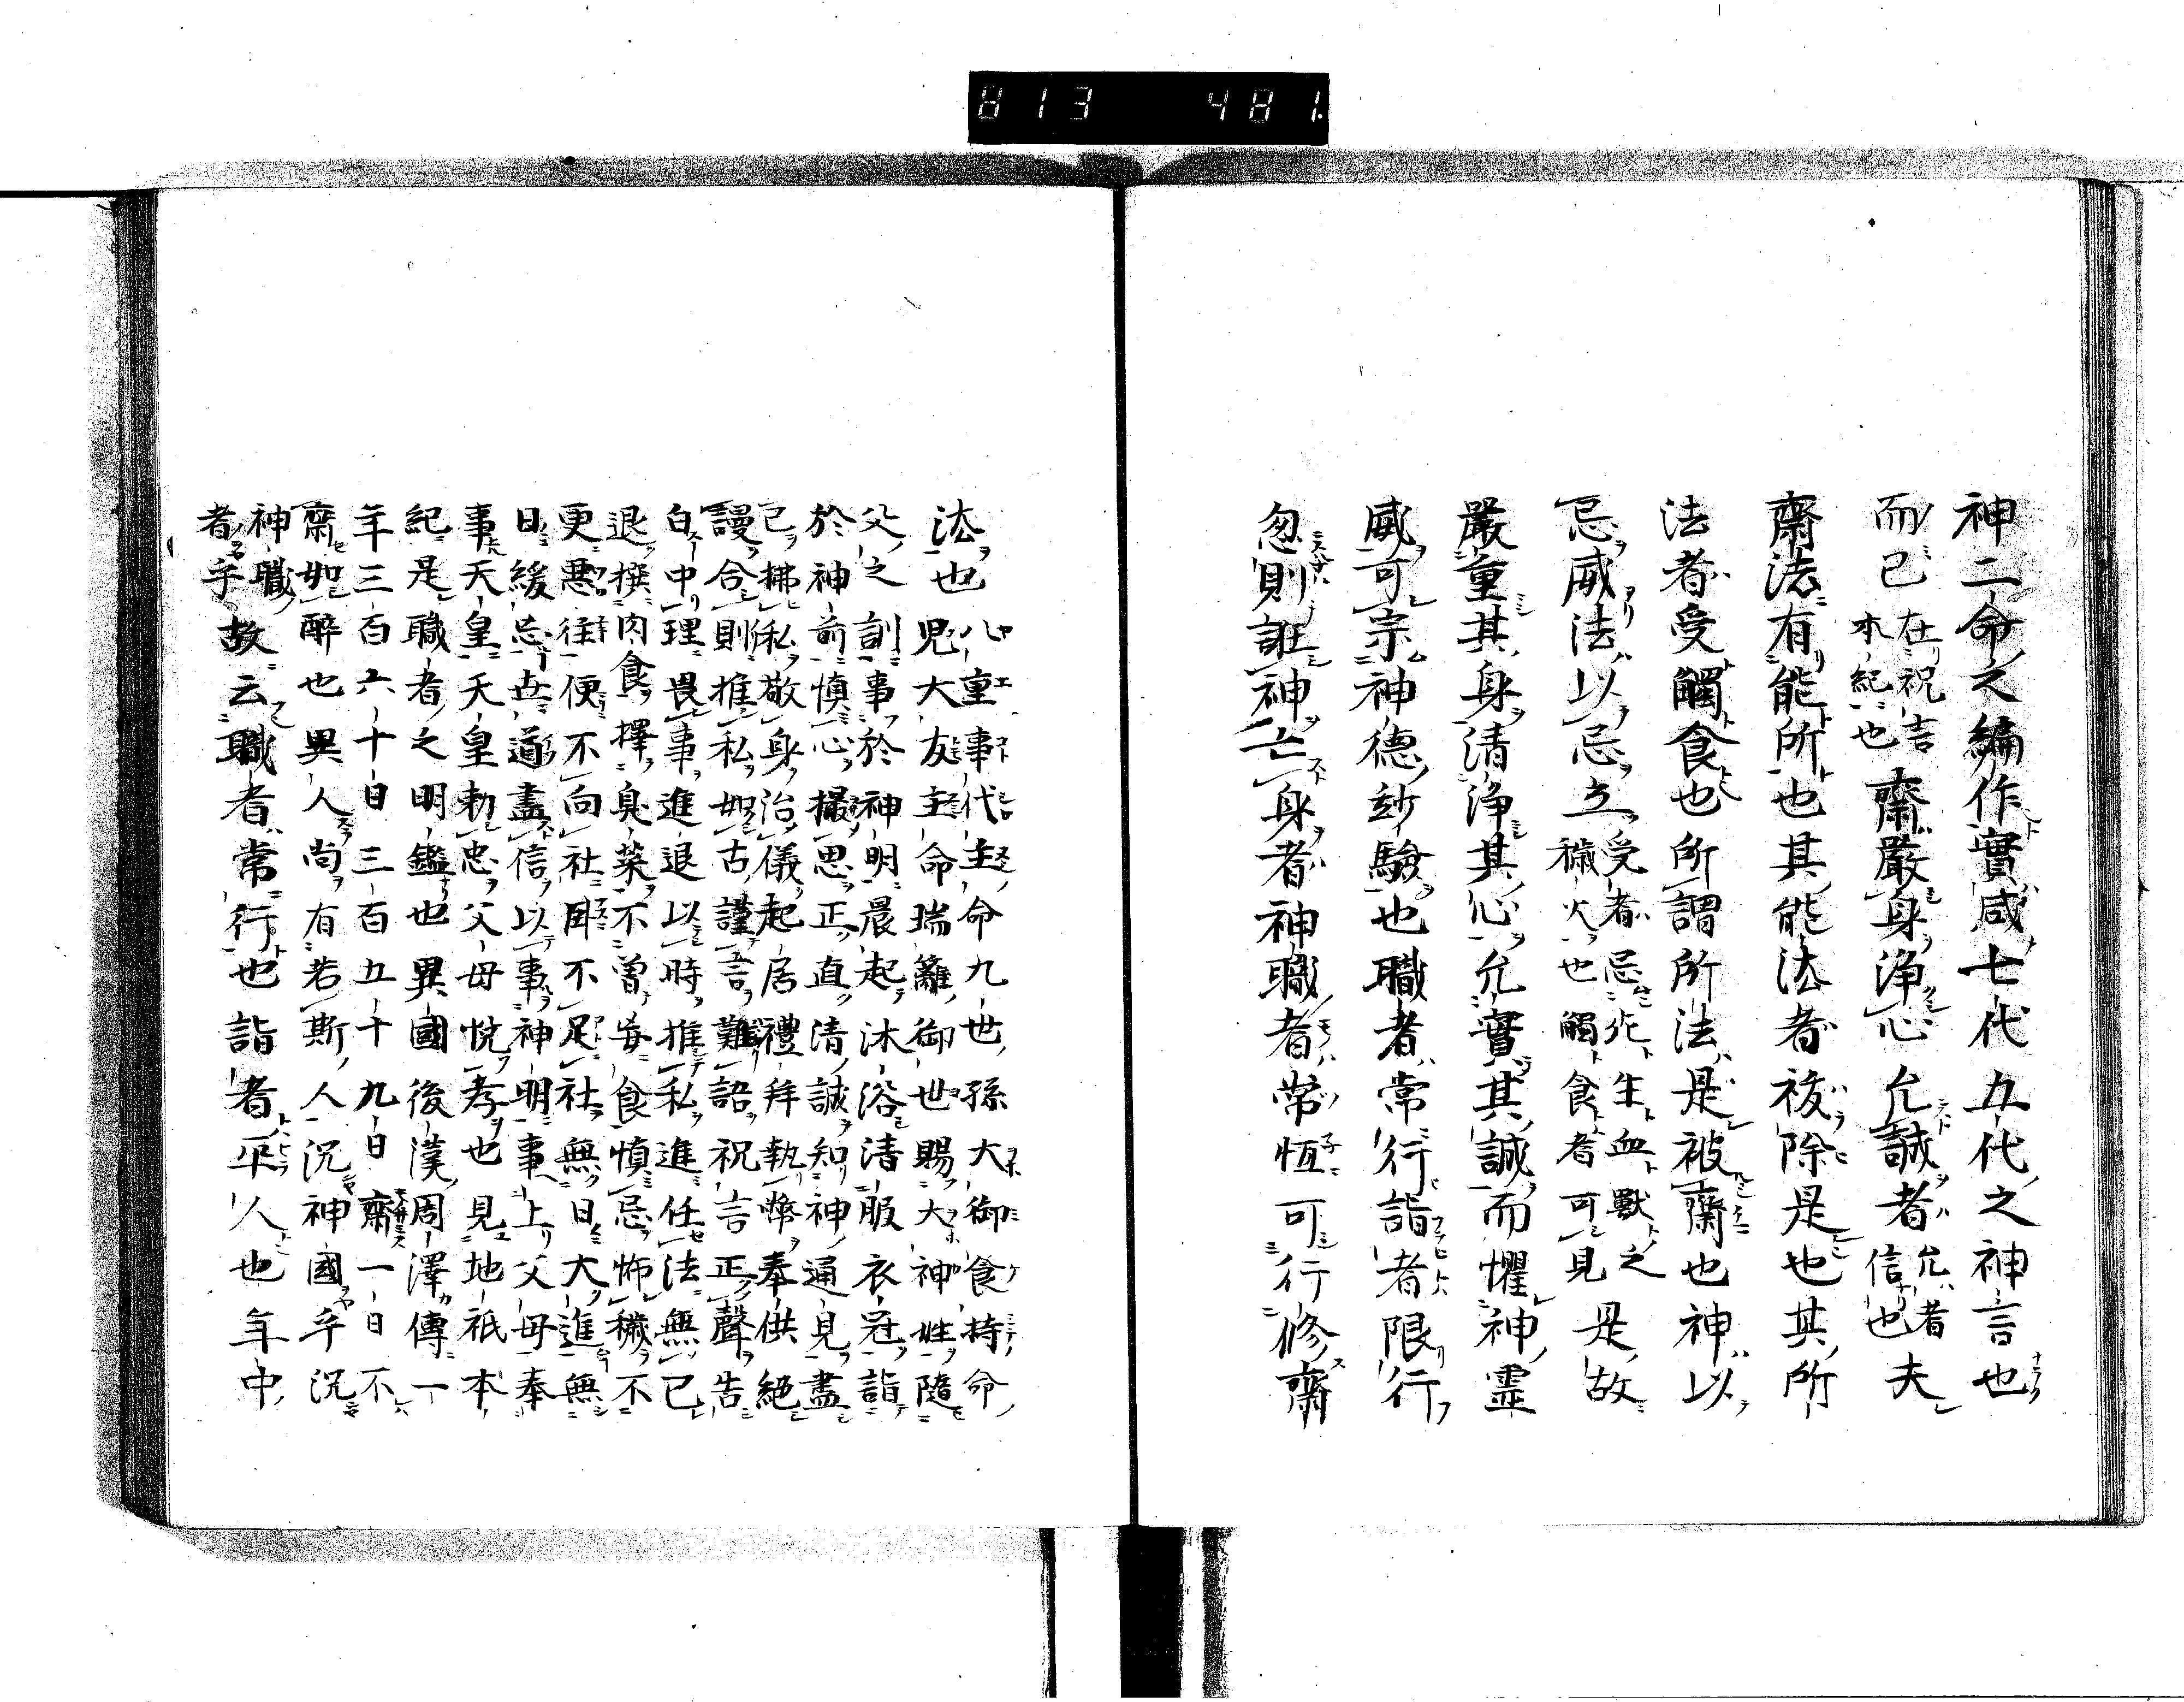 813 481.
神二命之編作實咸七代五代之神言也
而已在祝吉本紀也齋嚴身淨心允誠者允者信也夫
齋法有能所也其能法者祓除是也其所
法者受觸食也所謂所法是被齋也神以
忌威法以忌立受者忌死生血獸之穢火也觸食者可見是故
嚴重其身清淨其心允實其誠而懼神靈
威可宗神德紗驗也職者常行詣者限行
忽則誑神亡身者神職者常恆可行修齋
法也八重事代主命九世孫大御食持命
兒大友主命瑞籬御世賜大神姓隨
父之訓事於神明晨起沐浴清服衣冠詣
於神前慎心撮思正直清誠知神通見盡
己拂私敬身治儀起居禮拜執幣奉供絕
謾合則推私如古謹言難語祝言正聲告
白中理畏事進退以時推私進任法無己
退撰肉食擇臭菜不曾妄食慎忌怖穢不
更惡往便不向社團不足社無日大進無
日緩忘世道盡信以事神明事上父母奉
事天皇天皇勅忠父母悅孝也見地祇本
紀是職者之明鑑也異國後漢周澤傳一
年三百六十日三百五十九日齋一日不
齋如醉也異人尚有若斯人況神國乎況
神職者乎故云職者常行也詣者平人也年中